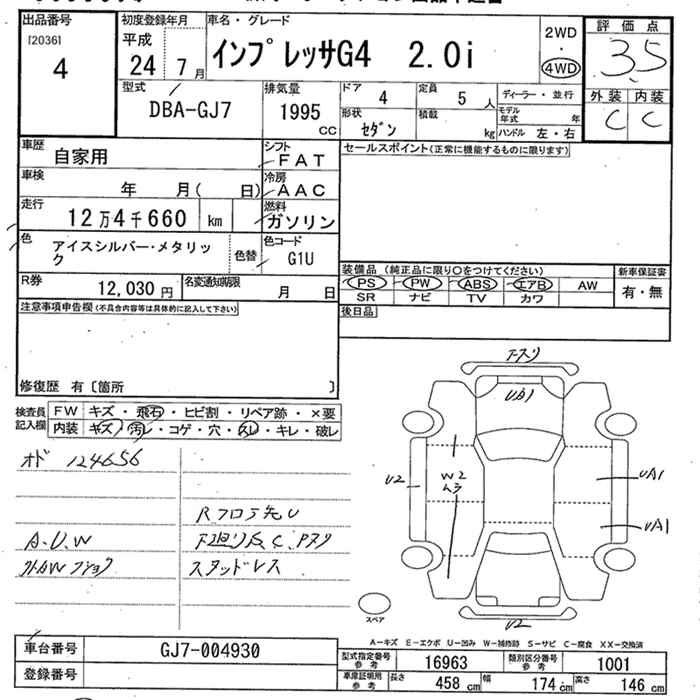 出品番号
[2036]
4
初度登録年月
平成
24 7月
車名・グレード
インプレッサG4 2.0i
2WD
・
4WD
評価点
3.5
外装 内装
C C
型式
DBA-GJ7
排気量
1995
cc
ドア 4
定員 5 人
ディーラー・並行
形状 セダン
積載 kg
モデル年式 年
ハンドル 左・右
車歴 自家用
シフト FAT
セールスポイント(正常に機能するものに限ります)
車検 年 月( 日)
冷房 AAC
走行 12万4千660 km
燃料 ガソリン
色 アイスシルバー・メタリック
色替
色コード G1U
R券 12,030円
名変通知期限 月 日
装備品(純正品に限り○をつけてください)
新車保証書
PS PW ABS エアB AW
有・無
SR ナビ TV カワ
後日品
注意事項申告欄(不具合内容等は具体的に記入して下さい)
修復歴 有〔箇所 〕
検査員記入欄
FW キズ・飛石・ヒビ割・リペア跡・×要
内装 キズ・汚レ・コゲ・穴・スレ・キレ・破レ
オド 124656
Rフロア先U
A.U.W
下廻り反C.Pスリ
スタッドレス
Fスリ
UB1
U2
W2
ムラ
UA1
UA1
U2
スペア
A-キズ E-エクボ U-凹み W-補修跡 S-サビ C-腐食 XX-交換済
車台番号 GJ7-004930
登録番号
型式指定番号 参考 16963
類別区分番号 参考 1001
車庫証明用 参考 長さ 458 cm 幅 174 cm 高さ 146 cm